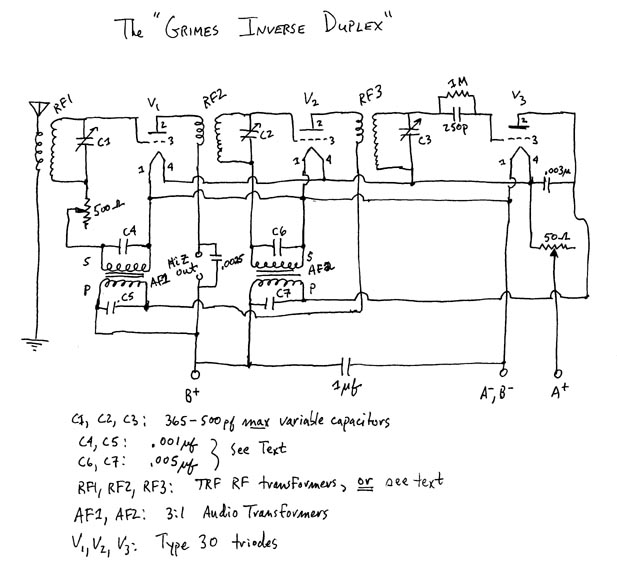 The "GRIMES INVERSE DUPLEX"
RF1 V1 RF2 V2 RF3 1M V3
C1 2 3 1 4
C2 2 3 1 4
C3 250p 2 3 1 4
.003µ
500Ω
C4
S
AF1
P
C5
HiZ out
.0025
C6
S
AF2
P
C7
50Ω
1µf
B+ A-, B- A+
C1, C2, C3: 365-500pf max variable capacitors
C4, C5: .001µf
C6, C7: .005µf } See Text
RF1, RF2, RF3: TRF RF transformers, or see text
AF1, AF2: 3:1 Audio Transformers
V1, V2, V3: Type 30 triodes